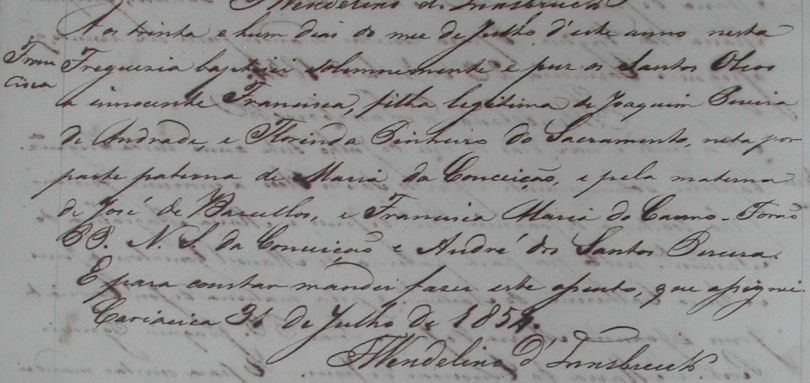 Wendelino d'Innsbruck
Aos trinta e hum dias do mez de Julho d'este anno nesta
Fran
cisca
Freguezia baptizei solemnemente e puz os Santos Oleos
a innocente Francisca, filha legitima de Joaquim Pereira
de Andrade, e Florinda Pinheiro do Sacramento, neta por
parte paterna de Maria da Conceição, e pela materna
de José de Barcellos, e Francisca Maria do Carmo. Forão
PP. N. S. da Conceição e André dos Santos Pereira.
E para constar mandei fazer este assento, que assignei
Cariacica 31 de Julho de 1854.
Wendelino d'Innsbruck